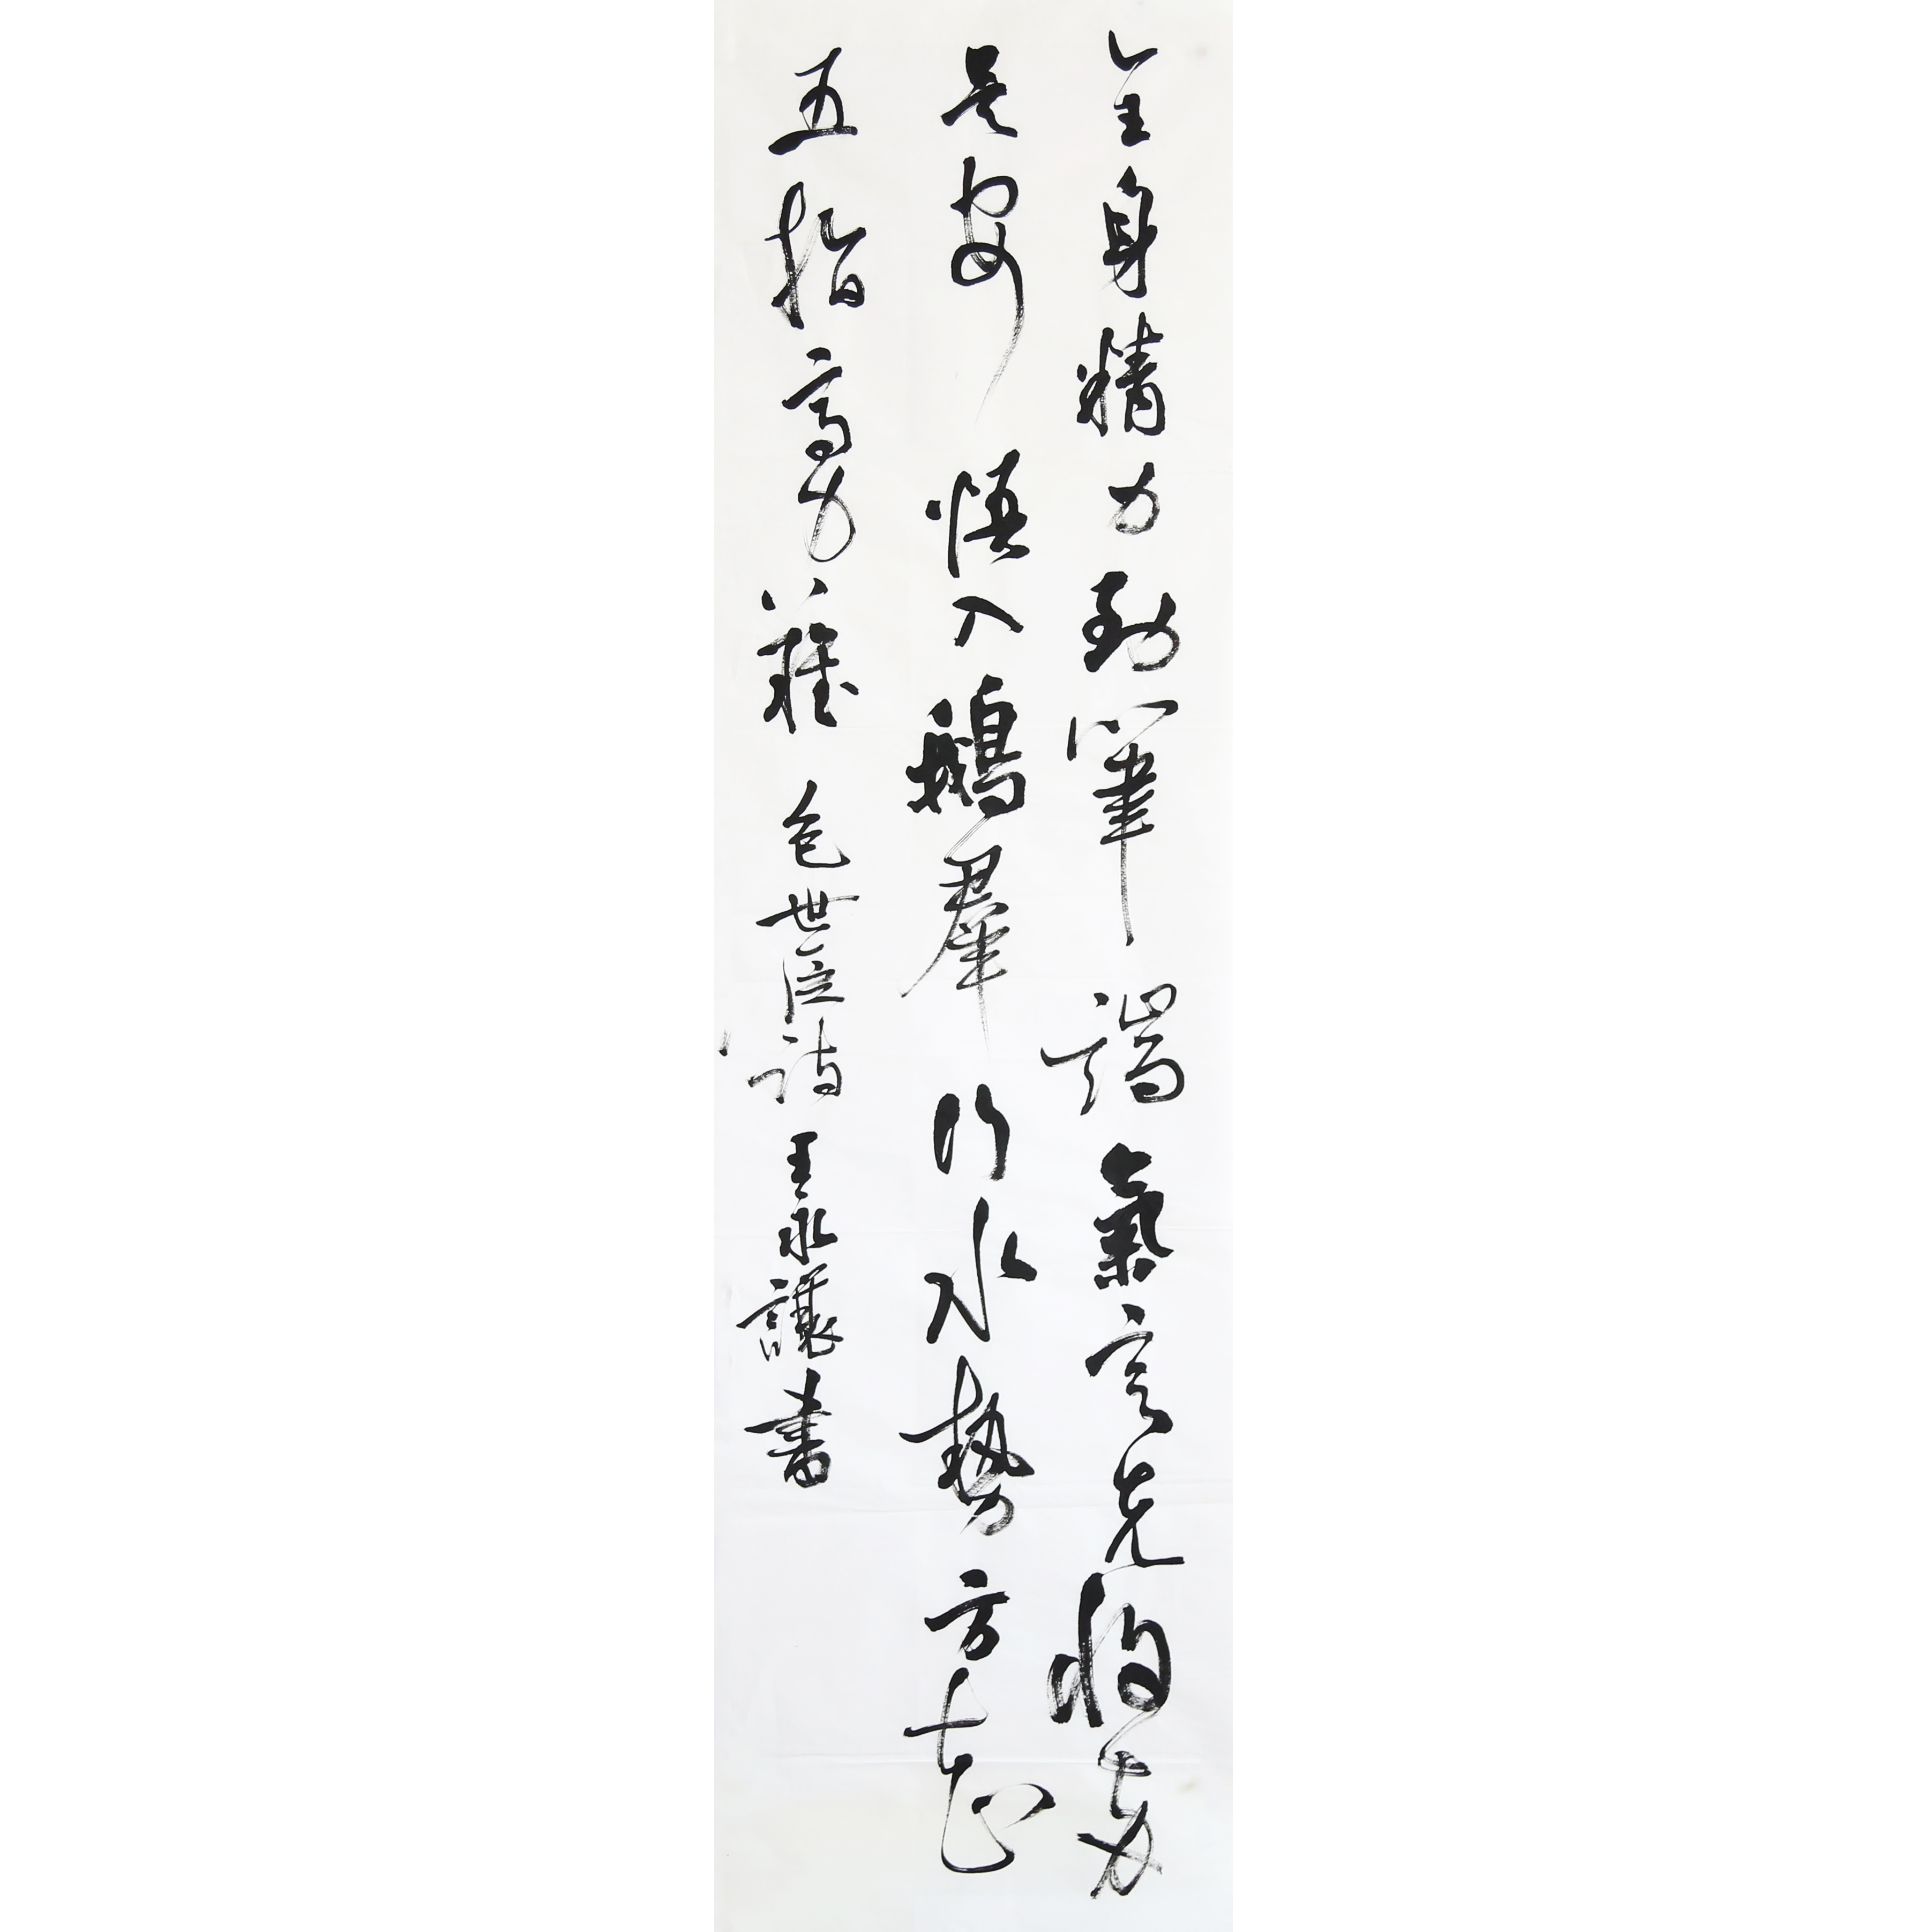 全身精力到筆端氣定先將兩
足安悟入鵝群行水勢方知
五指齊力難包世臣詩王永讓書